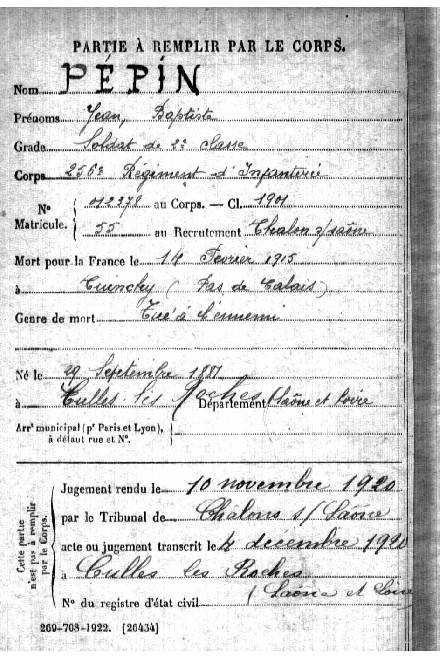 PARTIE À REMPLIR PAR LE CORPS.
Nom PÉPIN
Prénoms Jean, Baptiste
Grade Soldat de 2e classe
Corps 256e Régiment d'Infanterie
No 012278 au Corps. — Cl. 1901
Matricule. 55 au Recrutement Chalon s/saône
Mort pour la France le 14 Fevrier 1915
à Cuinchy (Pas de Calais)
Genre de mort Tué à l'ennemi
Né le 29 Septembre 1881
à Culles les Roches Département Saône et Loire
Arrt municipal (pr Paris et Lyon),
à défaut rue et No.
Cette partie
n'est pas à remplir
par le Corps.
Jugement rendu le 10 novembre 1920
par le Tribunal de Châlons s/ Saône
acte ou jugement transcrit le 4 décembre 1920
à Culles les Roches
(Saône et Loire
No du registre d'état civil
269-708-1922. [26434]